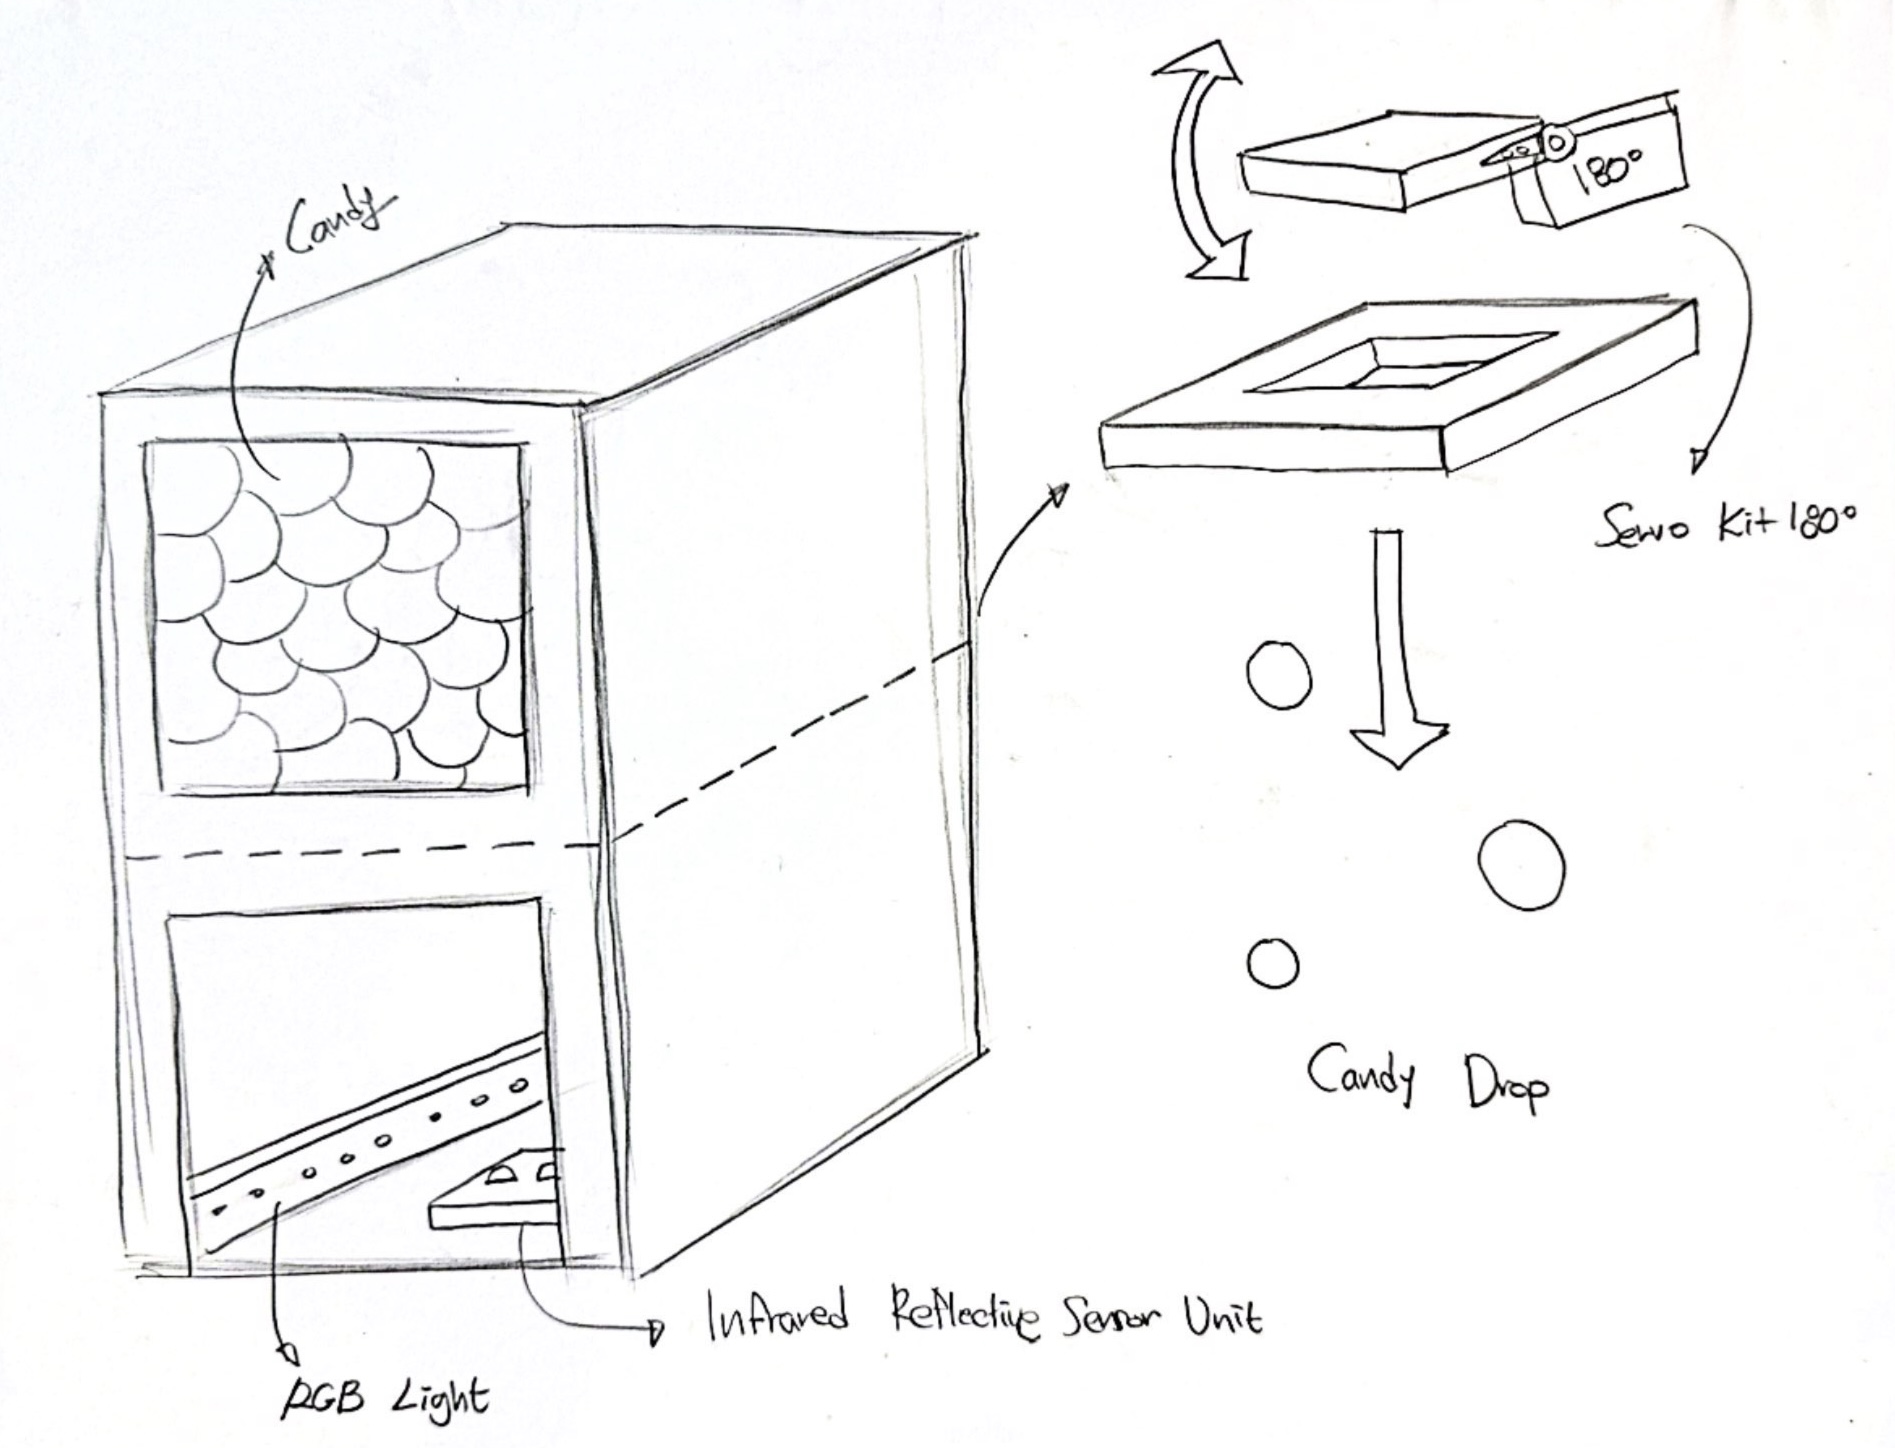 Candy
180°
Servo Kit 180°
Candy Drop
Infrared Reflective Sensor Unit
RGB Light